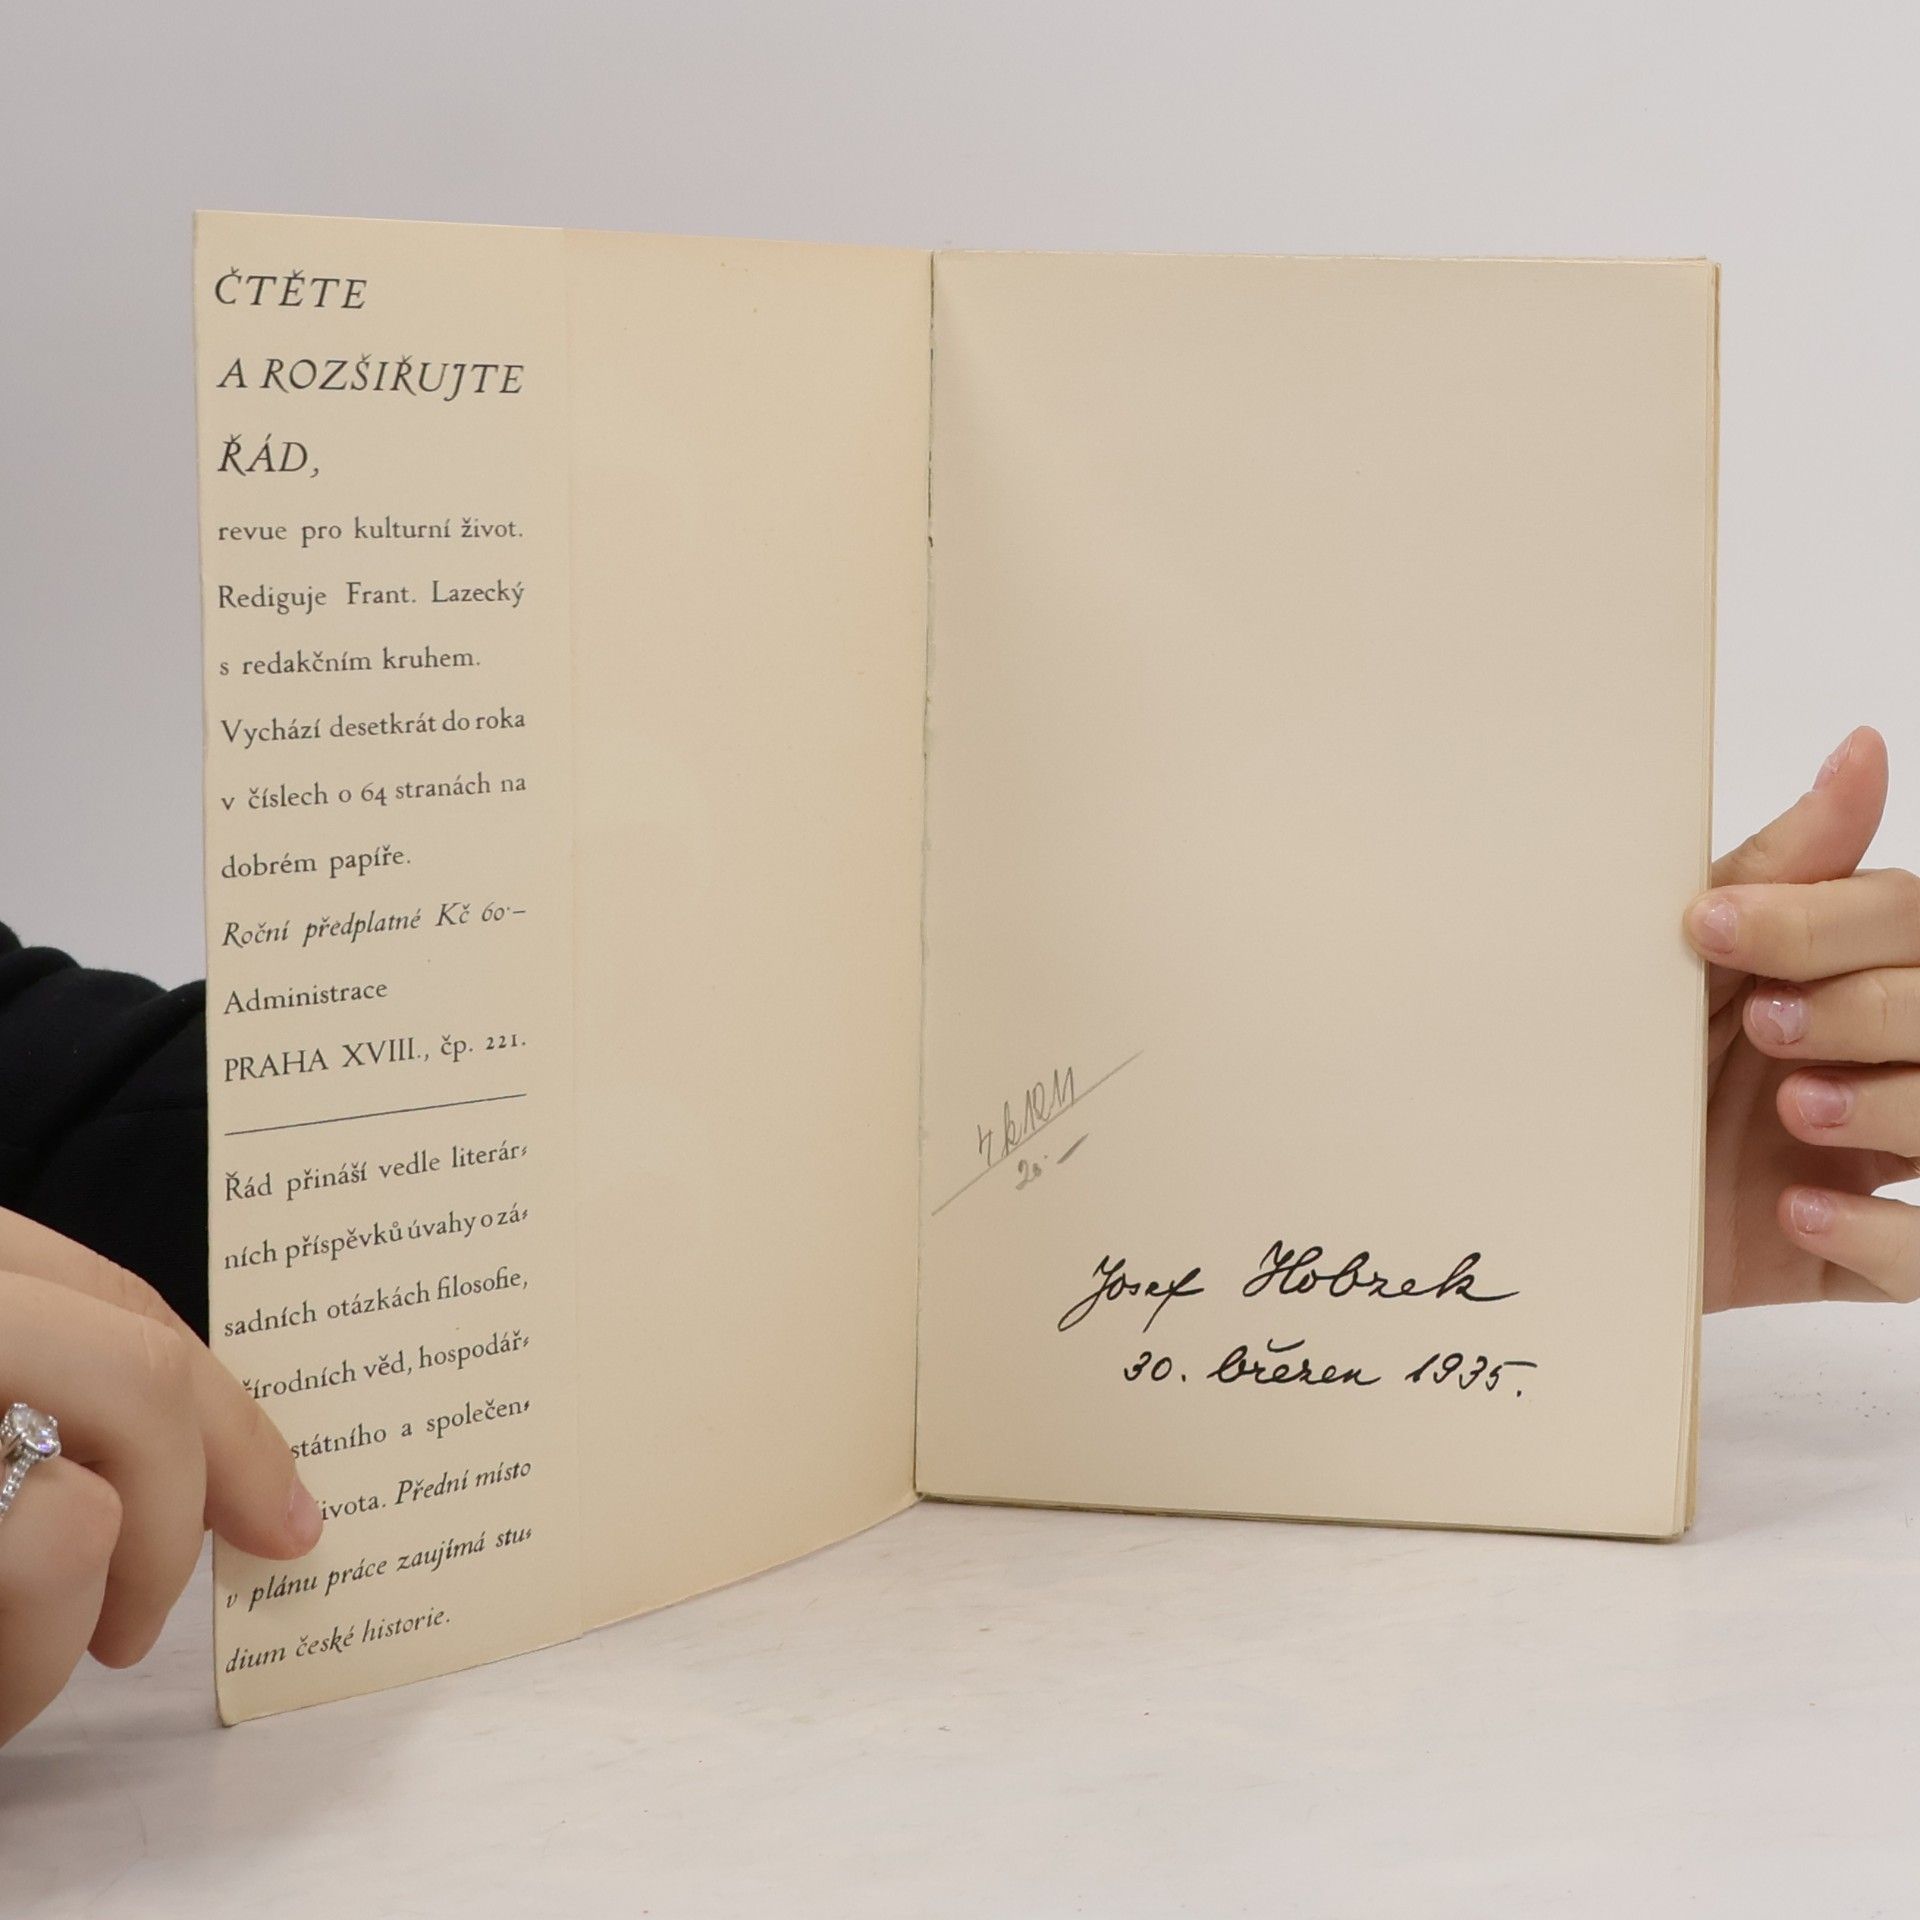 ČTĚTE
A ROZŠIŘUJTE
ŘÁD,
revue pro kulturní život.
Rediguje Frant. Lazecký
s redakčním kruhem.
Vychází desetkrát do roka
v číslech o 64 stranách na
dobrém papíře.
Roční předplatné Kč 60·–
Administrace
PRAHA XVIII., čp. 221.
Řád přináší vedle literár-
ních příspěvků úvahy o zá-
sadních otázkách filosofie,
írodních věd, hospodář-
státního a společen-
ivota. Přední místo
v plánu práce zaujímá stu-
dium české historie.
20.–
Josef Hobzek
30. březen 1935.